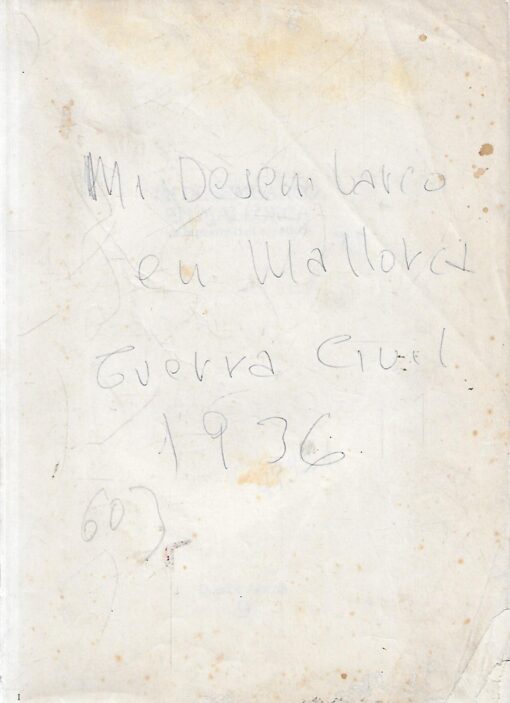 Mi Desembarco
en Mallorca
Guerra Civil
1936
603
I